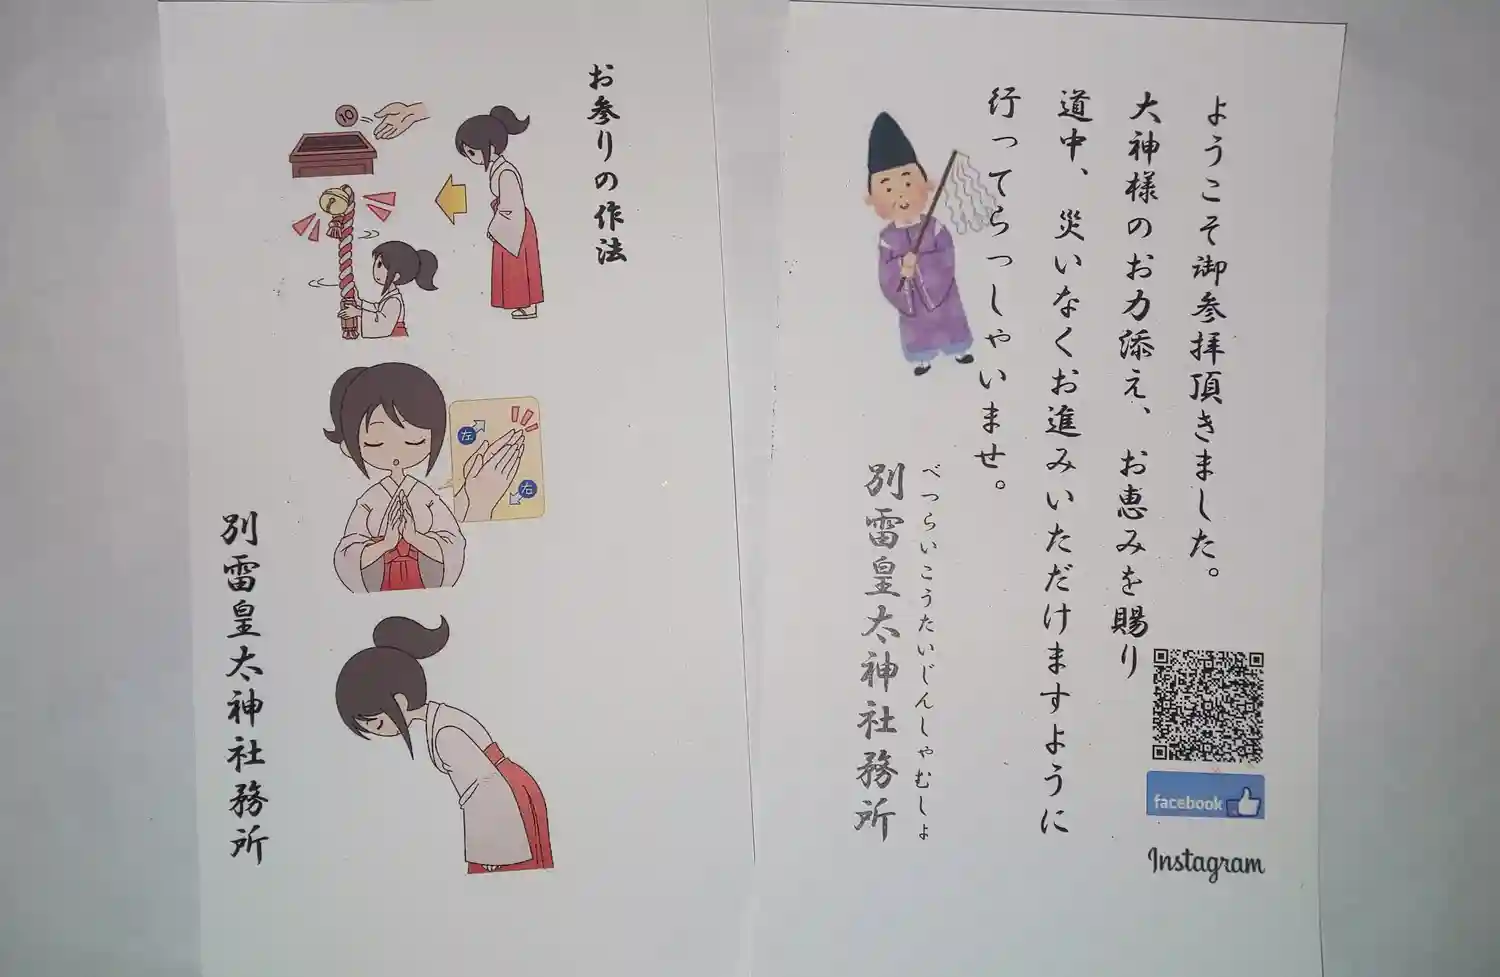 お参りの作法
10
左
右
別雷皇太神社務所
ようこそ御参拝頂きました。
大神様のお力添え、お恵みを賜り
道中、災いなくお進みいただけますように
行ってらっしゃいませ。
べつらいこうたいじんしゃむしょ
別雷皇太神社務所
facebook
Instagram